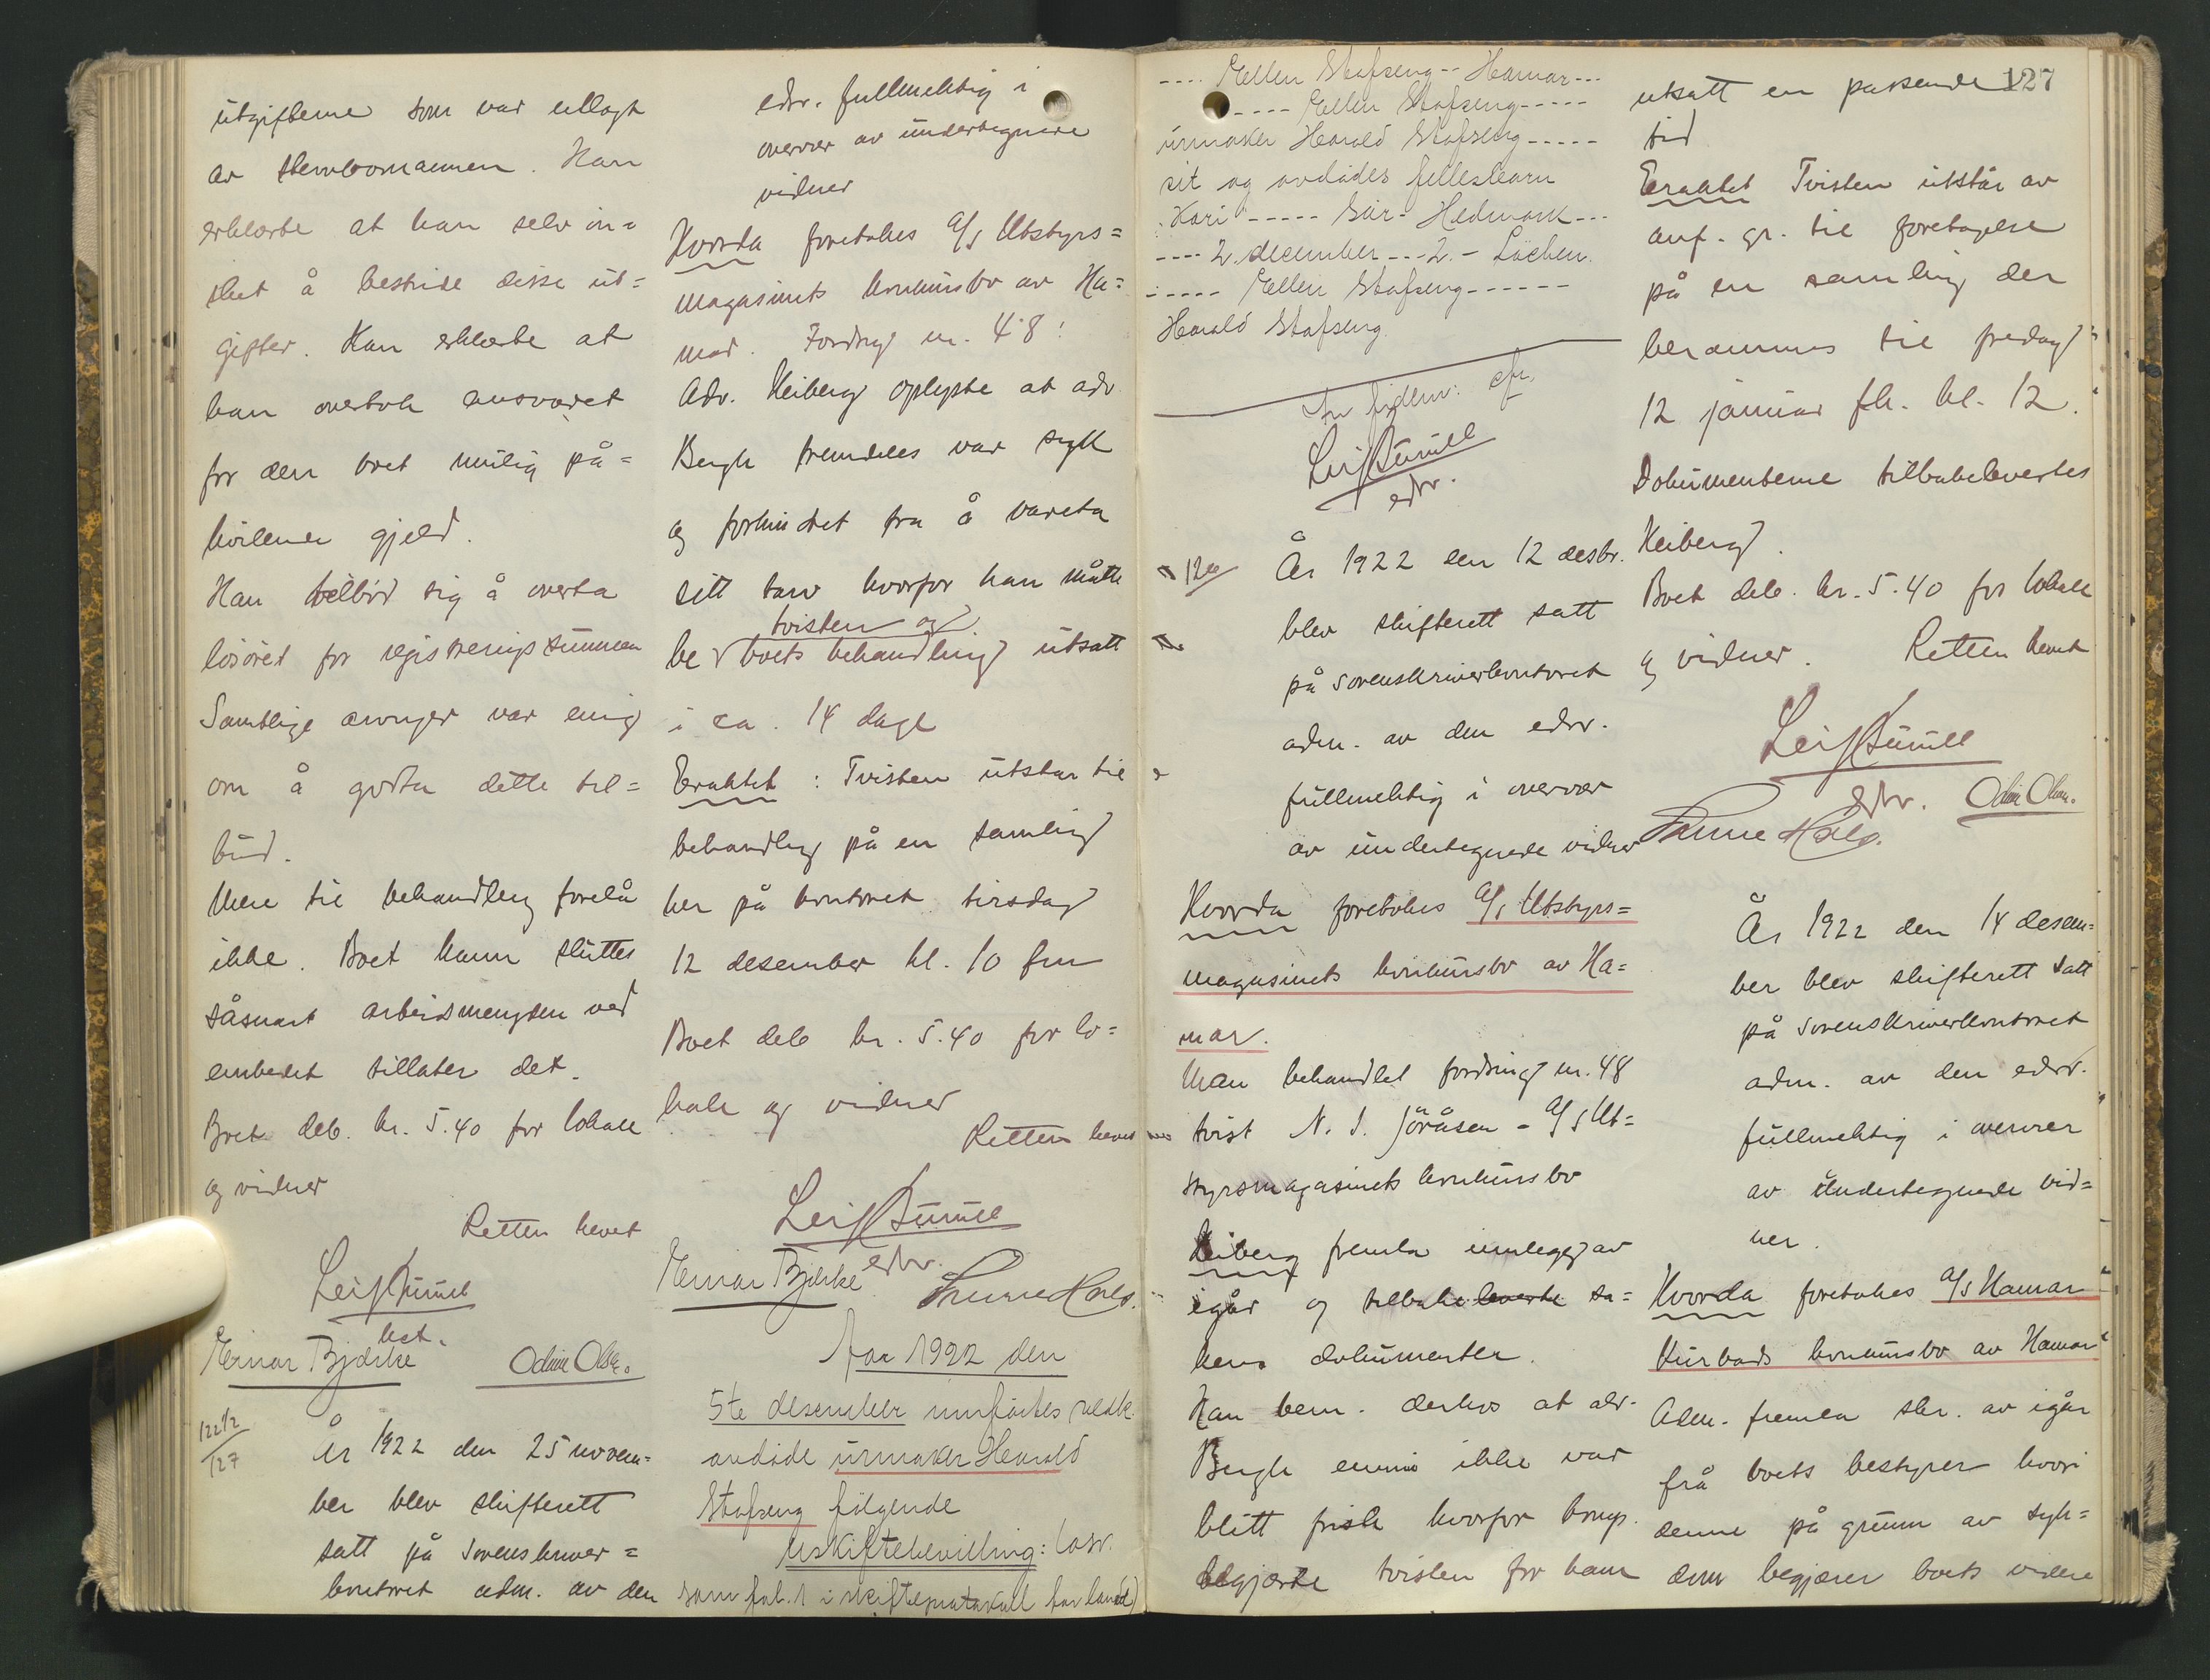 utgifterne som var utlagt
av stervbomannen. Han
erklærte at han selv øn=
sket å bestride disse ut=
gifter. Han erklærte at
han overtok ansvaret
for den boet mulig på=
hvilende gjeld.
Han tilbød sig å overta
løsøret for registreringssummen
Samtlige arvinger var enig
om å godta dette til=
bud.
Mere til behandling forelå
ikke. Boet kann sluttes
såsnart arbeidsmengden ved
embedet tillater det.
Boet deb. kr. 5.40 for lokale
og vidner
Retten hevet
Einar Bjørke Odin Olsen.
122 1/2
/127
År 1922 den 25 novem=
ber blev skifterett
satt på sorenskriver=
kontoret adm. av den
edsv. fullmektig i
overvær av undertegnede
vidner
Hvorda foretokes A/S Utstyrs=
magasinets konkursbo av Ha=
mar. Fordring nr. 48:
Adv. Heiberg oplyste at adv
Bergh fremdeles var syk
og forhindret fra å vareta
sitt tarv hvorfor han måtte
tvisten og
be boets behandling utsatt
i ca. 14 dage
Eraktet: Tvisten utstår til
behandling på en samling
her på kontoret tirsdag
12 desember kl. 10 fm
Boet deb kr. 5.40 for lo=
kale og vidner
Retten hevet
edsv.
Einar Bjørke
Aar 1922 den
5te desember innførtes vedk.
avdøde urmaker Harald
Stafseng følgende
Uskiftebevilling: Losv.
som fol. 1 i skifteprotokoll for land)
---- Ellen Stafseng -- Hamar ---
---- Ellen Stafseng -----
urmaker Harald Stafseng -----
sit og avdødes fellesbarn
"Kari" ----- Sør- Hedmark ---
---- 2. december --- 2. - Løchen.
----- Ellen Stafseng ------
Harald Stafseng
edsv.
År 1922 den 12 desbr.
blev skifterett satt
på sorenskriverkontoret
adm. av den edsv.
fullmektig i overvær
av undertegnede vidner
Hvorda foretokes A/S Utstyrs=
magasinets konkursbo av Ha=
mar.
Man behandlet fordring nr. 48
tvist N. J. Jøråsen - A/S Ut=
styrsmagasinets konkursbo
Heiberg fremla innlegg av
igår og tilbakeleverte sa=
kens dokumenter.
Han bem. derhos at adv.
Bergh ennu ikke var
blitt frisk hvorfor komp.
begjærte tvisten for ham
127
utsatt en passende
tid
Eraktet Tvisten utstår av
anf. gr. til foretagelse
på en samling der
berammes til fredag
12 januar fk. kl. 12.
Dokumenterne tilbakelevertes
Heiberg.
Boet deb. kr. 5.40 for lokale
og vidner. Retten hevet
edsv. Odin Olsen.
År 1922 den 14 desem=
ber blev skifterett satt
på sorenskriverkontoret
adm. av den edsv.
fullmektig i overvær
av undertegnede vid=
ner.
Hvorda foretokes A/S Hamar
Kurbads konkursbo av Hamar
Adm. fremla skr. av igår
frå boets bestyrer hvori
denne på grunn av syk=
dom begjærer boets videre